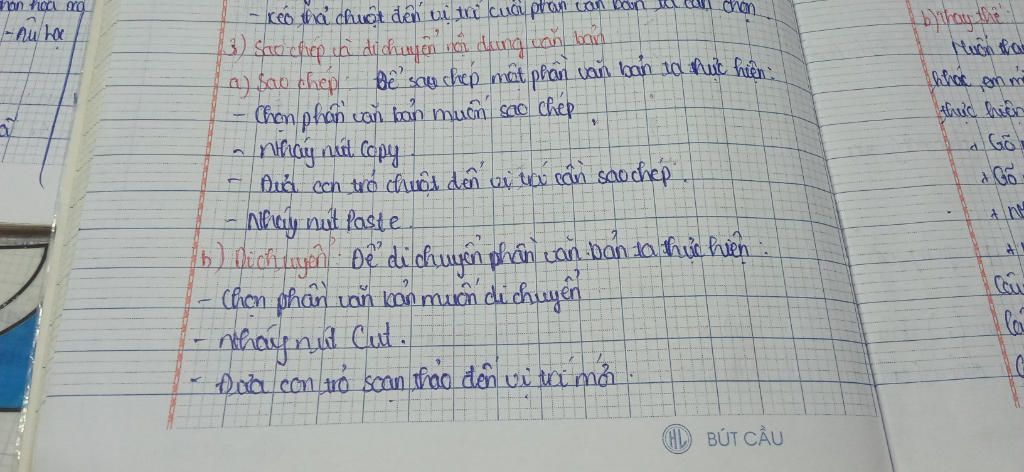 - kéo thả chuột đến vị trí cuối phần văn bản ta cần chọn.
3) Sao chép và di chuyển nội dung văn bản
a) Sao chép: Để sao chép một phần văn bản ta thực hiện:
- Chọn phần văn bản muốn sao chép.
- Nháy nút Copy
- Đưa con trỏ chuột đến vị trí cần sao chép.
- Nháy nút Paste
b) Di chuyển: Để di chuyển phần văn bản ta thực hiện:
- Chọn phần văn bản muốn di chuyển
- Nháy nút Cut.
- Đưa con trỏ soạn thảo đến vị trí mới.
HL BÚT CẦU
b) Thay thế
Muốn
khác, em
thực hiện
+ Gõ
+ Gõ